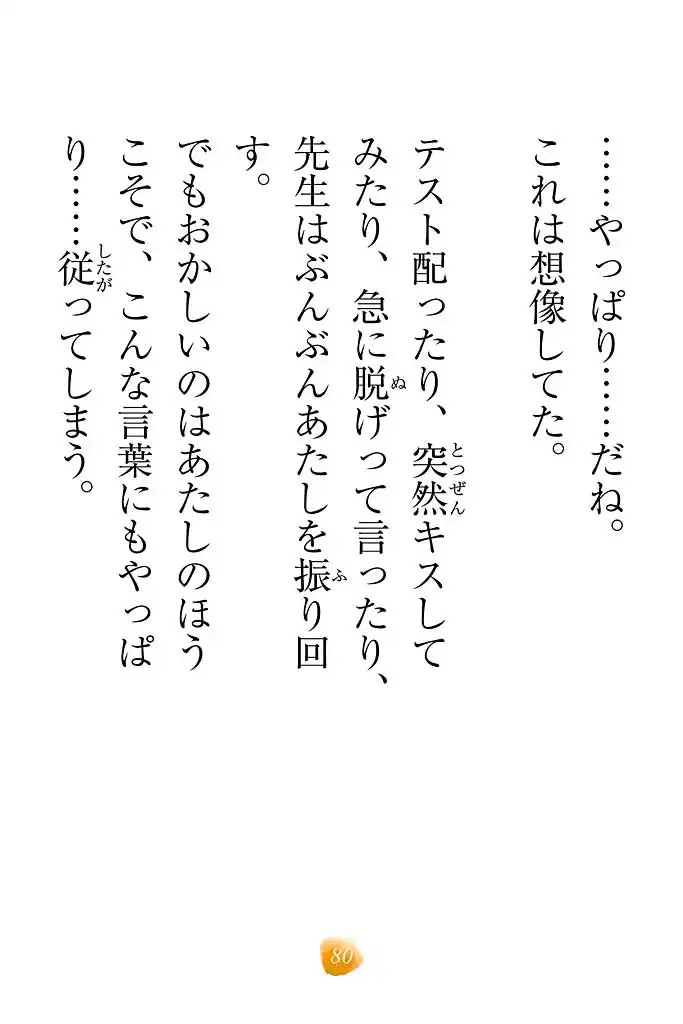 ……やっぱり……だね。
これは想像してた。
テスト配ったり、突然キスして
みたり、急に脱げって言ったり、
先生はぶんぶんあたしを振り回
す。
でもおかしいのはあたしのほう
こそで、こんな言葉にもやっぱ
り……従ってしまう。
80